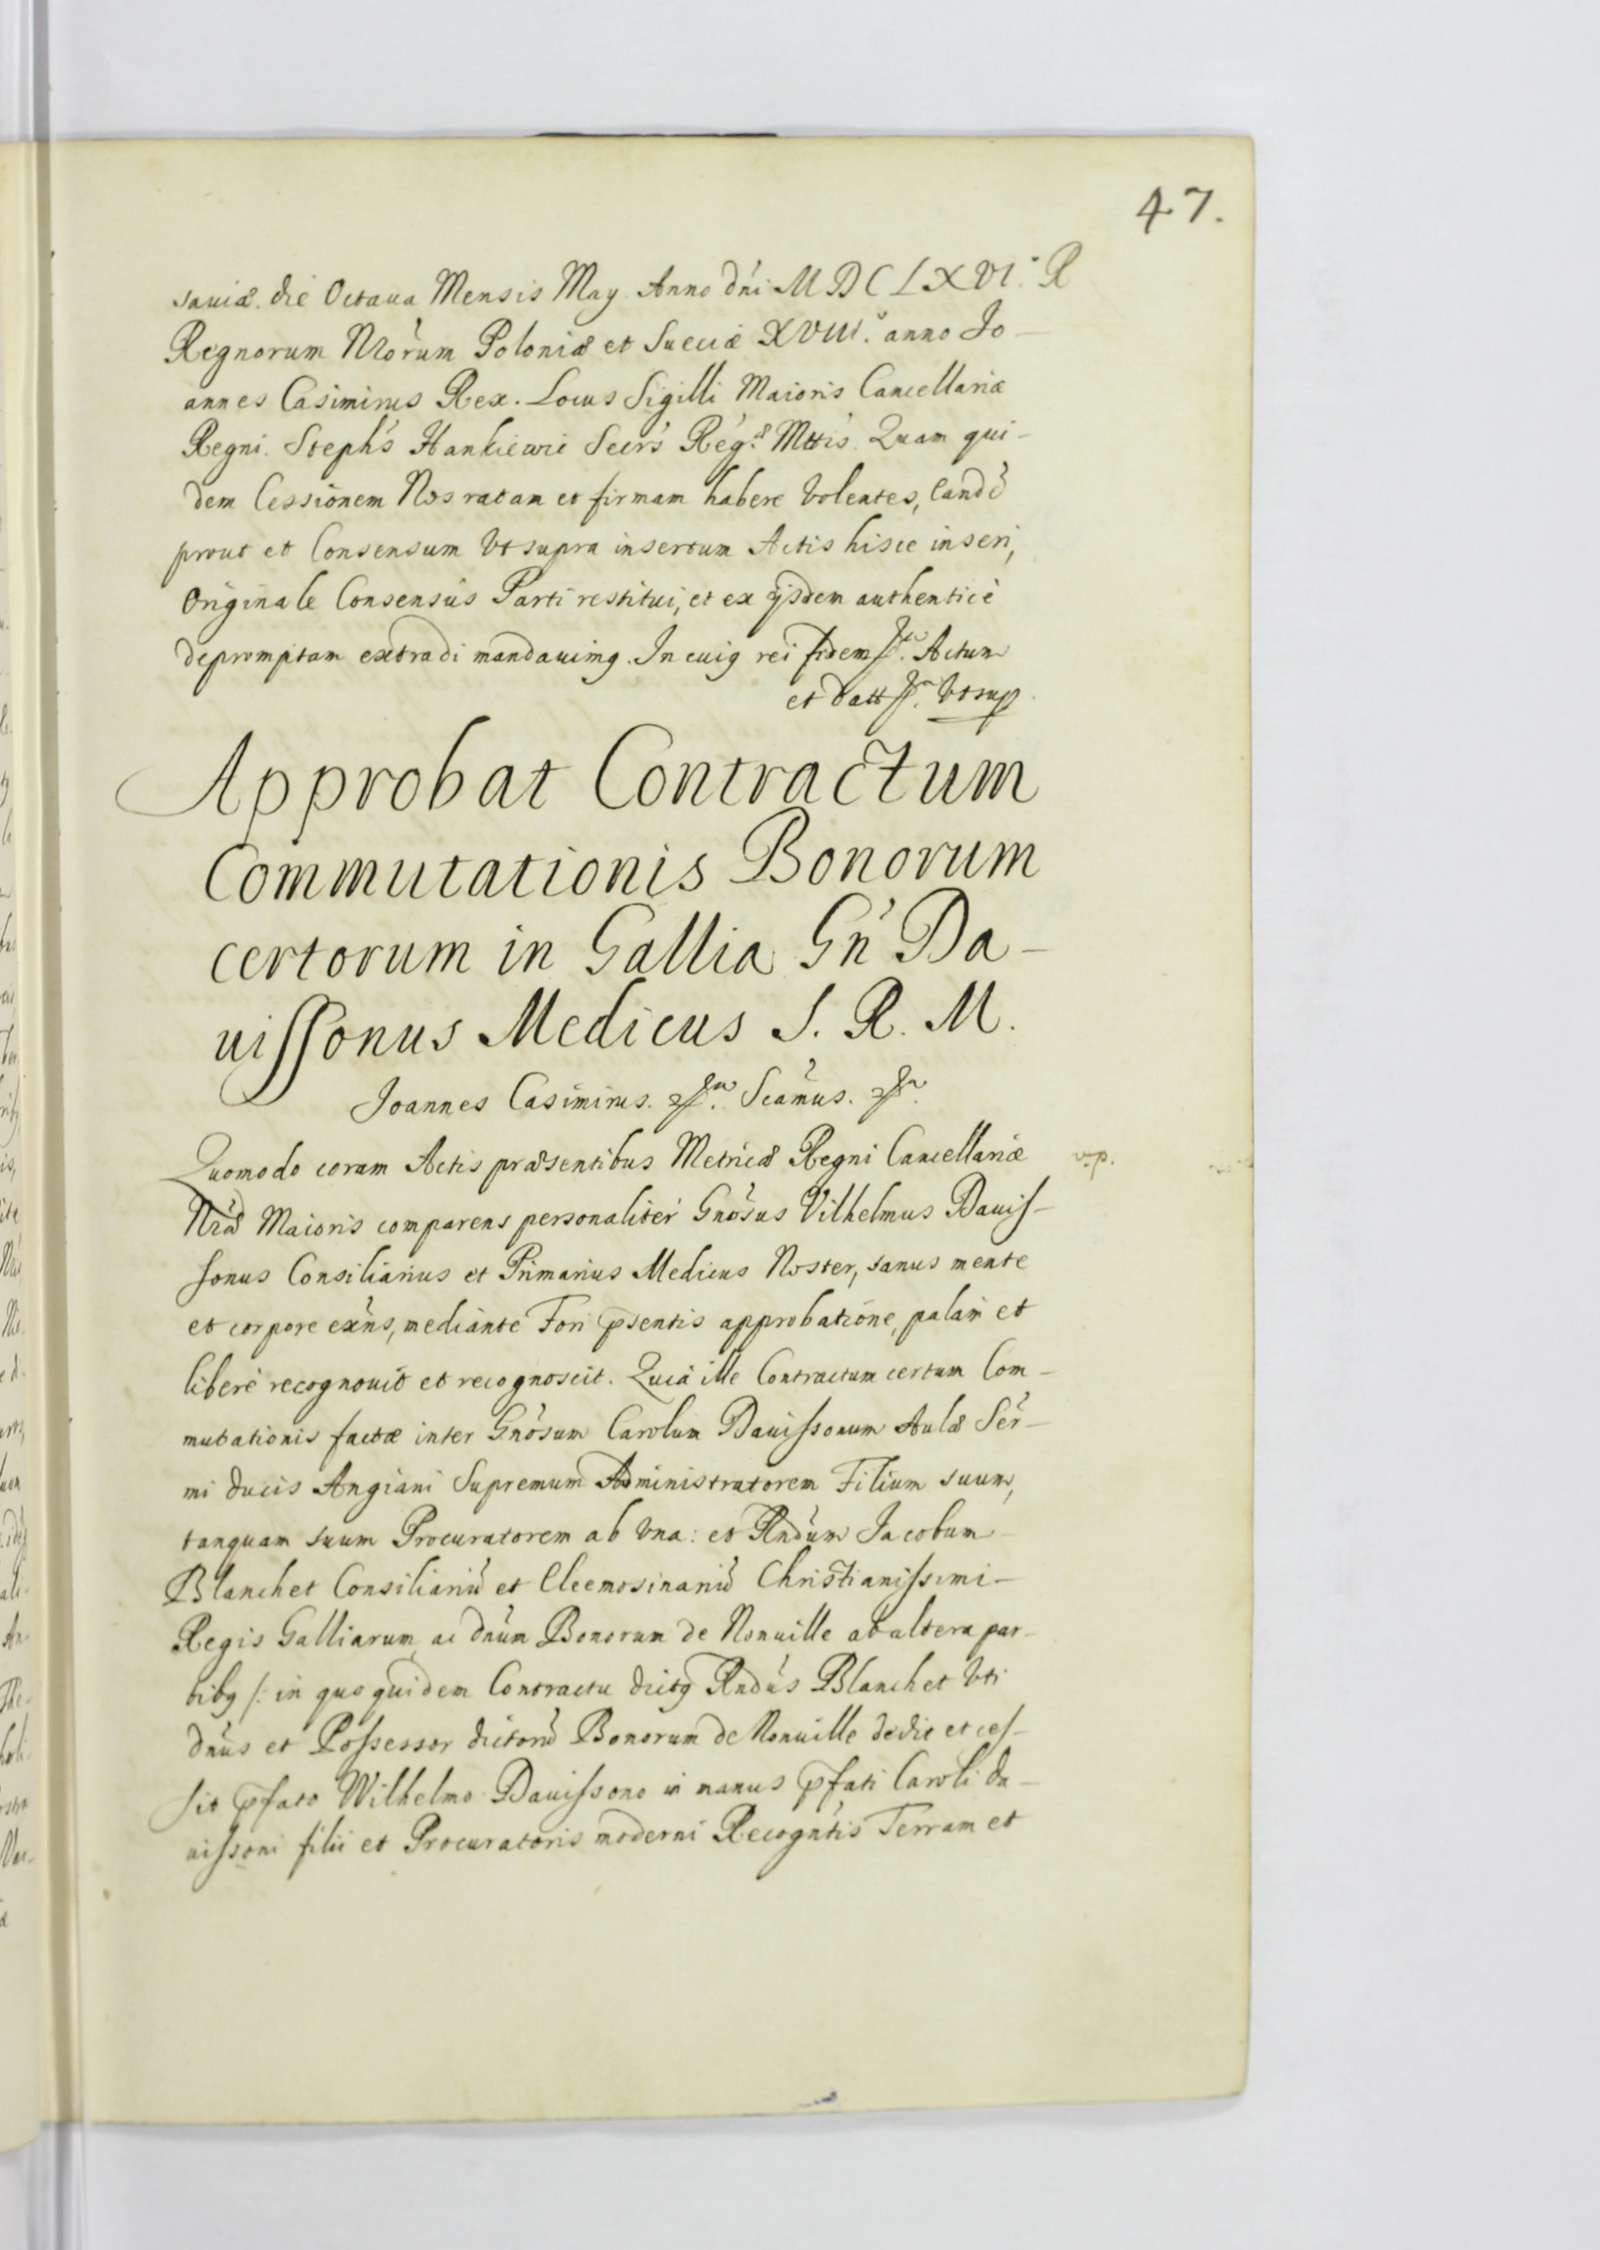 47.
saviæ. die Octava Mensis May. Anno dńi M D C L X VI.° R
Regnorum Nrórum Poloniæ et Sueciæ XVIII.° anno Jo-
annes Casimirus Rex. Locus Sigilli Maioris Cancellariæ
Regni. Stephs Hankiewic Secrs Reg.æ Mttis. Quam qui-
dem Cessionem Nos ratam et firmam habere volentes, eandē
prout et Consensum vt supra insertum Actis hisce inseri,
Originale Consensus Parti restitui, et ex ijsdem authenticè
depromptam extradi mandauimꝰ. In cuiꝰ rei fidem. Actum
et datt. vt sup
Approbat Contractum
Commutationis Bonorum
certorum in Gallia Gń Da-
uiſſonus Medicus S. R. M.
Joannes Casimirus. Scámus.
Quomodo coram Actis præsentibus Metricæ Regni Cancellariæ
v.p.
Nræ Maioris comparens personaliter Gnósus Vilhelmus Dauiſ-
ſonus Consiliarius et Primarius Medicus Noster, sanus mente
et corpore exńs, mediante Fori p̄sentis approbatione, palam et
liberè recognouit et recognoscit. Quia ille Contractum certum Com-
mutationis factæ inter Gnósum Carolum Dauiſsonum Aulæ Ser-
mi ducis Angiani Supremum Administratorem Filium suum,
tanquam suum Procuratorem ab vna: et Rndúm Jacobum
Blanchet Consiliariū et Eleemosinariū Christianiſsimi-
Regis Galliarum, ac dnúm Bonorum de Nonuille ab altera par-
tibꝰ /: in quo quidem Contractu dictꝰ Rndús Blanchet vti
dnús et Poſsessor dictorū Bonorum de Nonuille dedit et ceſ-
ſit p̄fato Wilhelmo Dauiſsono in manus p̄fati Caroli da-
uiſsoni filii et Procuratoris moderni Recogńtis Terram et